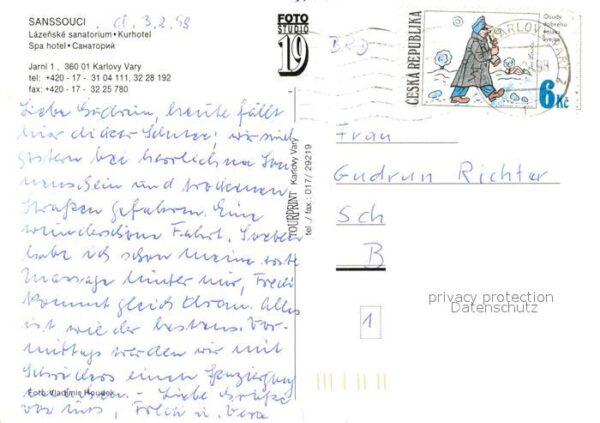 SANSSOUCI d. 3.2.98
Lázeňské sanatorium • Kurhotel
Spa hotel • Санаторий
Jarní 1, 360 01 Karlovy Vary
tel: +420 - 17 - 31 04 111, 32 28 192
fax: +420 - 17 - 32 25 780
Liebe Gudrun, heute fällt
hier dicker Schnee; wir sind
gestern bei herrlichem Son-
nenschein und trockenen
Straßen gefahren. Eine
wunderschöne Fahrt. Soeben
habe ich schon meine erste
Massage hinter mir, Fredi
kommt gleich dran. Alles
ist wieder bestens. Vor-
mittags werden wir mit
Schröders einen Spaziergang
machen. – Liebe Grüße
von uns, Fredi u. Vera
Foto: Vladimír Houdek
FOTO
STUDIO
19
TOURPRINT Karlovy Vary
tel./fax.: 017/29219
BRD
ČESKÁ REPUBLIKA
Osudy
dobrého
vojáka
Švejka
6 Kč
KARLOVY VARY 2
Frau
Gudrun Richter
Sch
B
1
privacy protection
Datenschutz